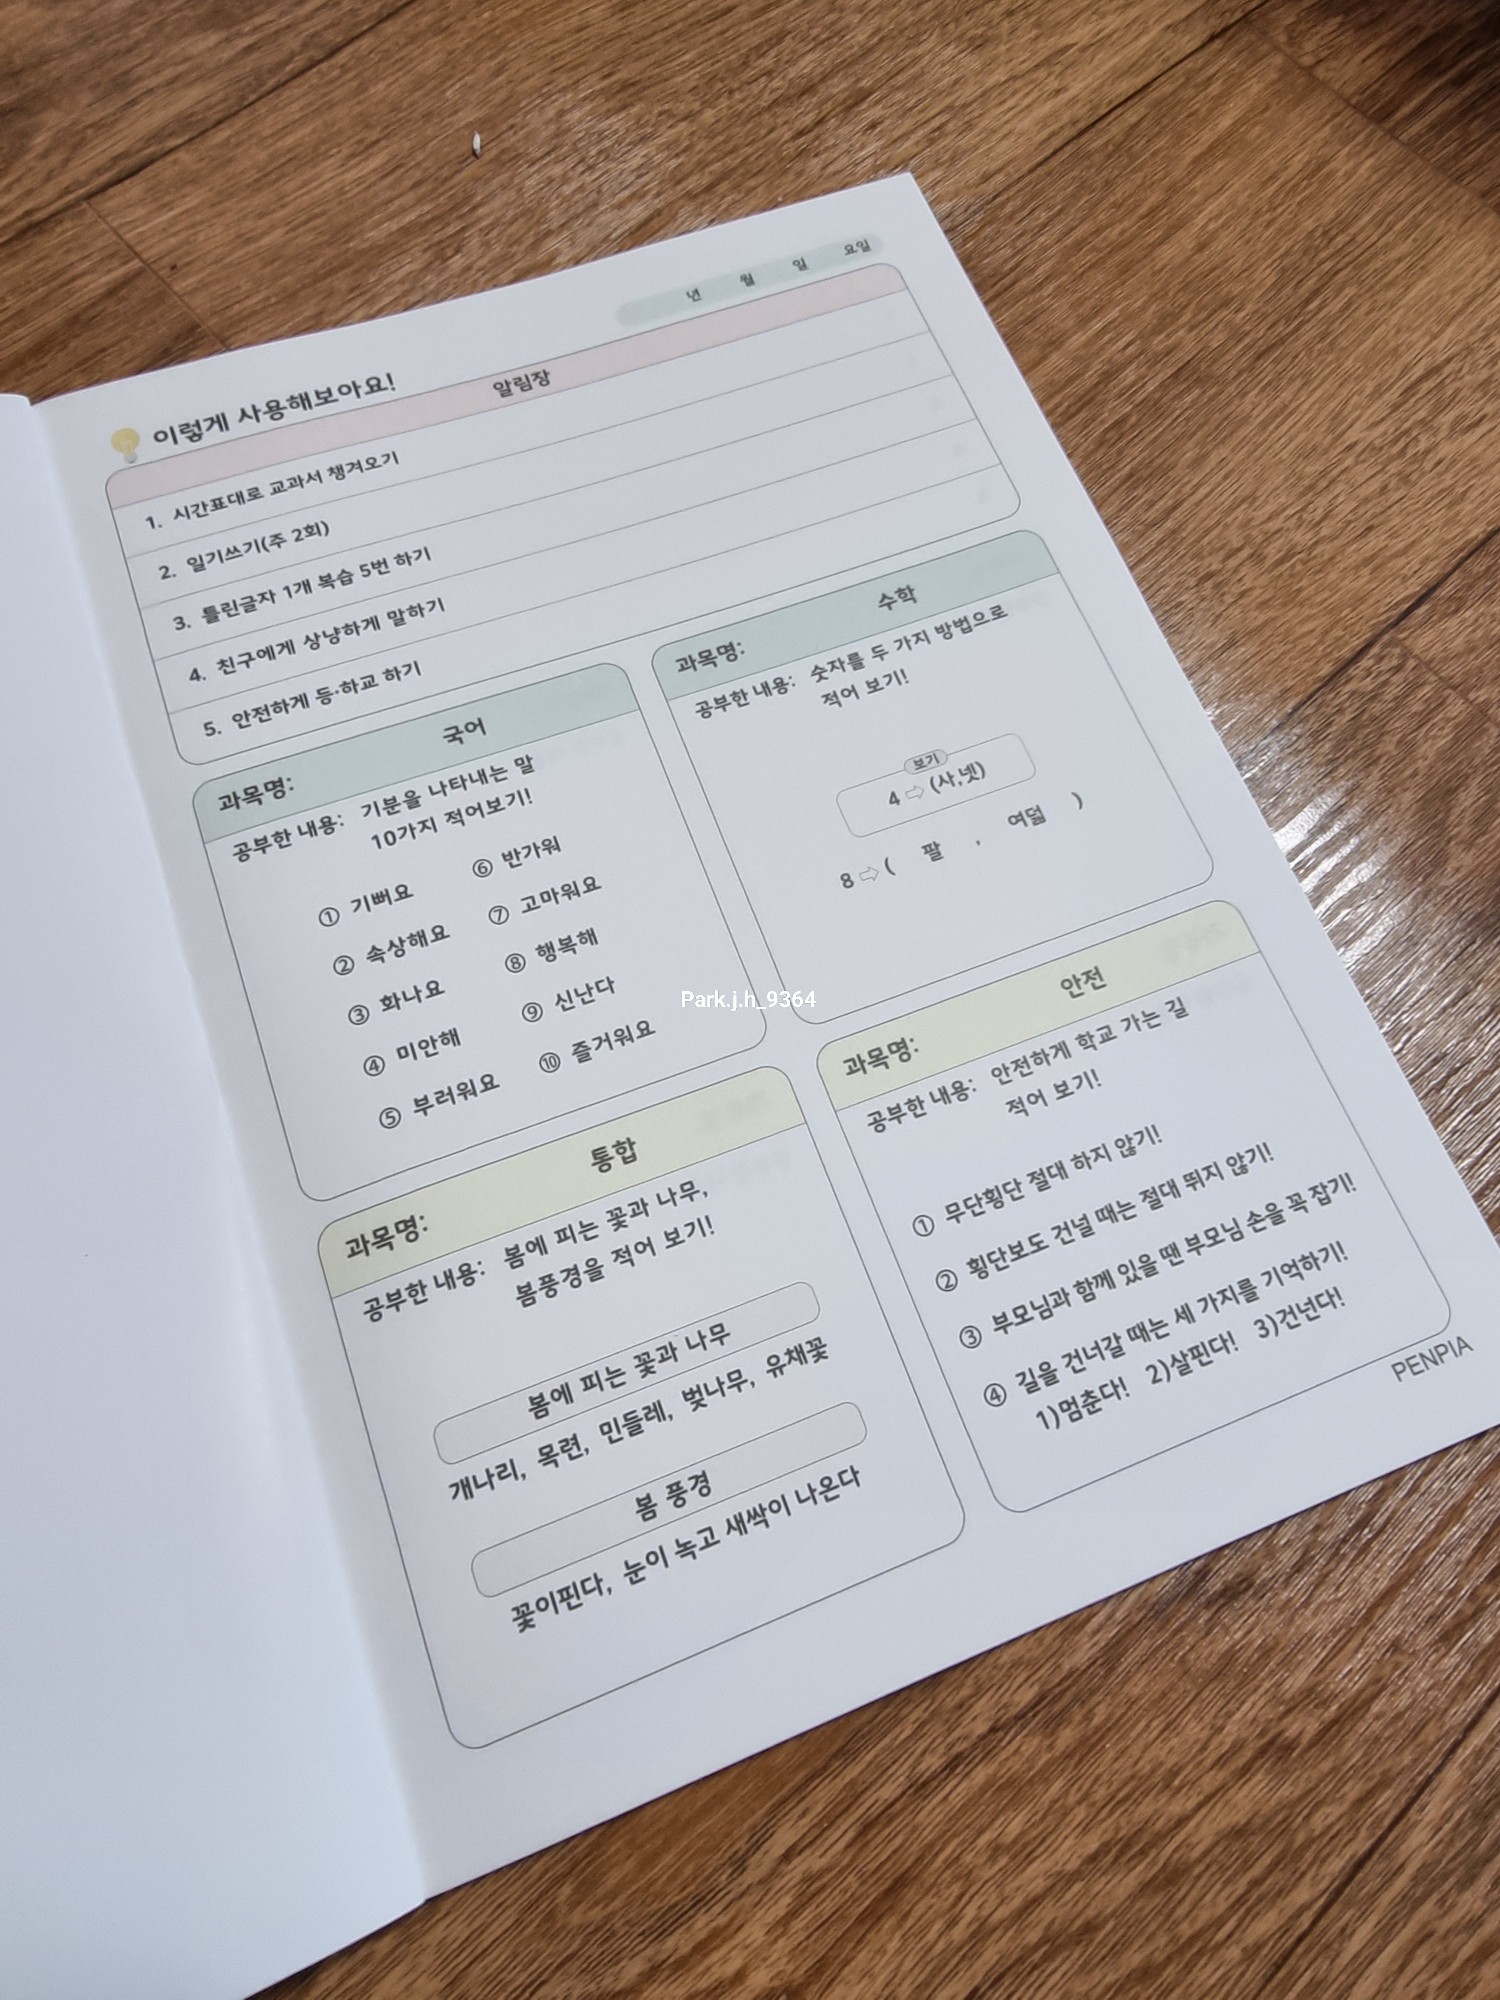 년 월 일 요일
이렇게 사용해보아요!
알림장
1. 시간표대로 교과서 챙겨오기
2. 일기쓰기(주 2회)
3. 틀린글자 1개 복습 5번 하기
4. 친구에게 상냥하게 말하기
5. 안전하게 등·하교 하기
과목명: 국어
공부한 내용: 기분을 나타내는 말
10가지 적어보기!
① 기뻐요
② 속상해요
③ 화나요
④ 미안해
⑤ 부러워요
⑥ 반가워
⑦ 고마워요
⑧ 행복해
⑨ 신난다
⑩ 즐거워요
과목명: 수학
공부한 내용: 숫자를 두 가지 방법으로
적어 보기!
보기
4 ⇨ (사,넷)
8 ⇨ ( 팔 , 여덟 )
과목명: 통합
공부한 내용: 봄에 피는 꽃과 나무,
봄풍경을 적어 보기!
봄에 피는 꽃과 나무
개나리, 목련, 민들레, 벚나무, 유채꽃
봄 풍경
꽃이핀다, 눈이 녹고 새싹이 나온다
과목명: 안전
공부한 내용: 안전하게 학교 가는 길
적어 보기!
① 무단횡단 절대 하지 않기!
② 횡단보도 건널 때는 절대 뛰지 않기!
③ 부모님과 함께 있을 땐 부모님 손을 꼭 잡기!
④ 길을 건너갈 때는 세 가지를 기억하기!
1)멈춘다! 2)살핀다! 3)건넌다!
PENPIA
Park.j.h_9364